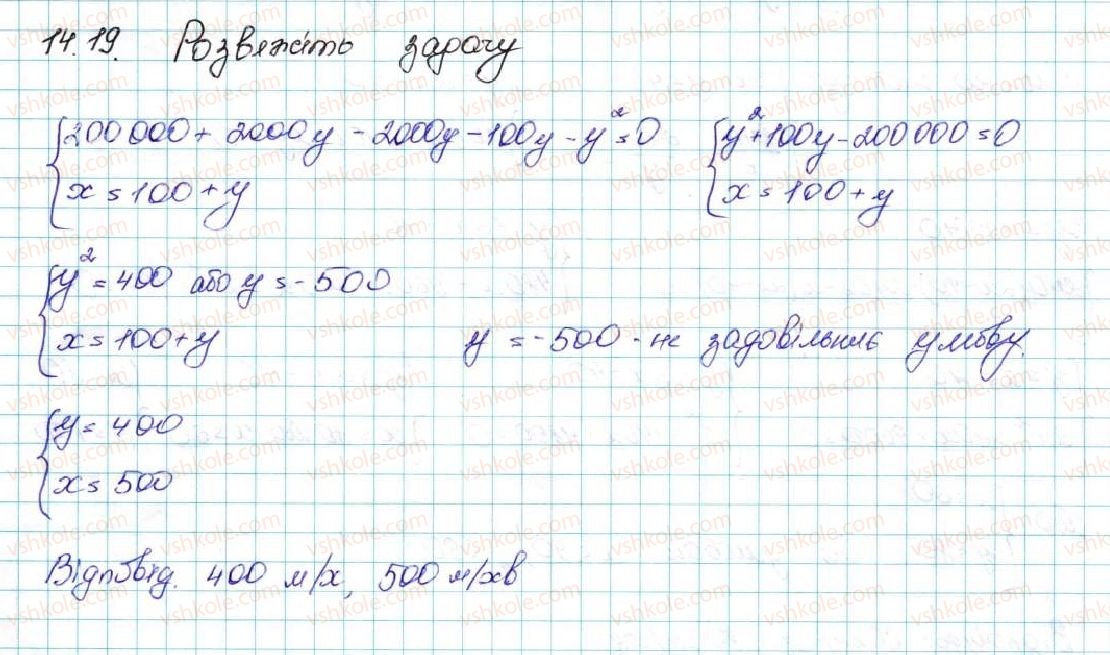 14.19. Розвяжіть задачу
{200 000 + 2000y - 2000y - 100y - y² = 0 {y² + 100y - 200 000 = 0
{x = 100 + y {x = 100 + y
{y² = 400 або y = -500
{x = 100 + y y = -500 - не задовільняє умову.
{y = 400
{x = 500
Відповід. 400 м/х, 500 м/хв